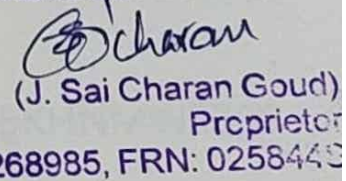 charan
(J. Sai Charan Goud)
Proprietor
268985, FRN: 025844S